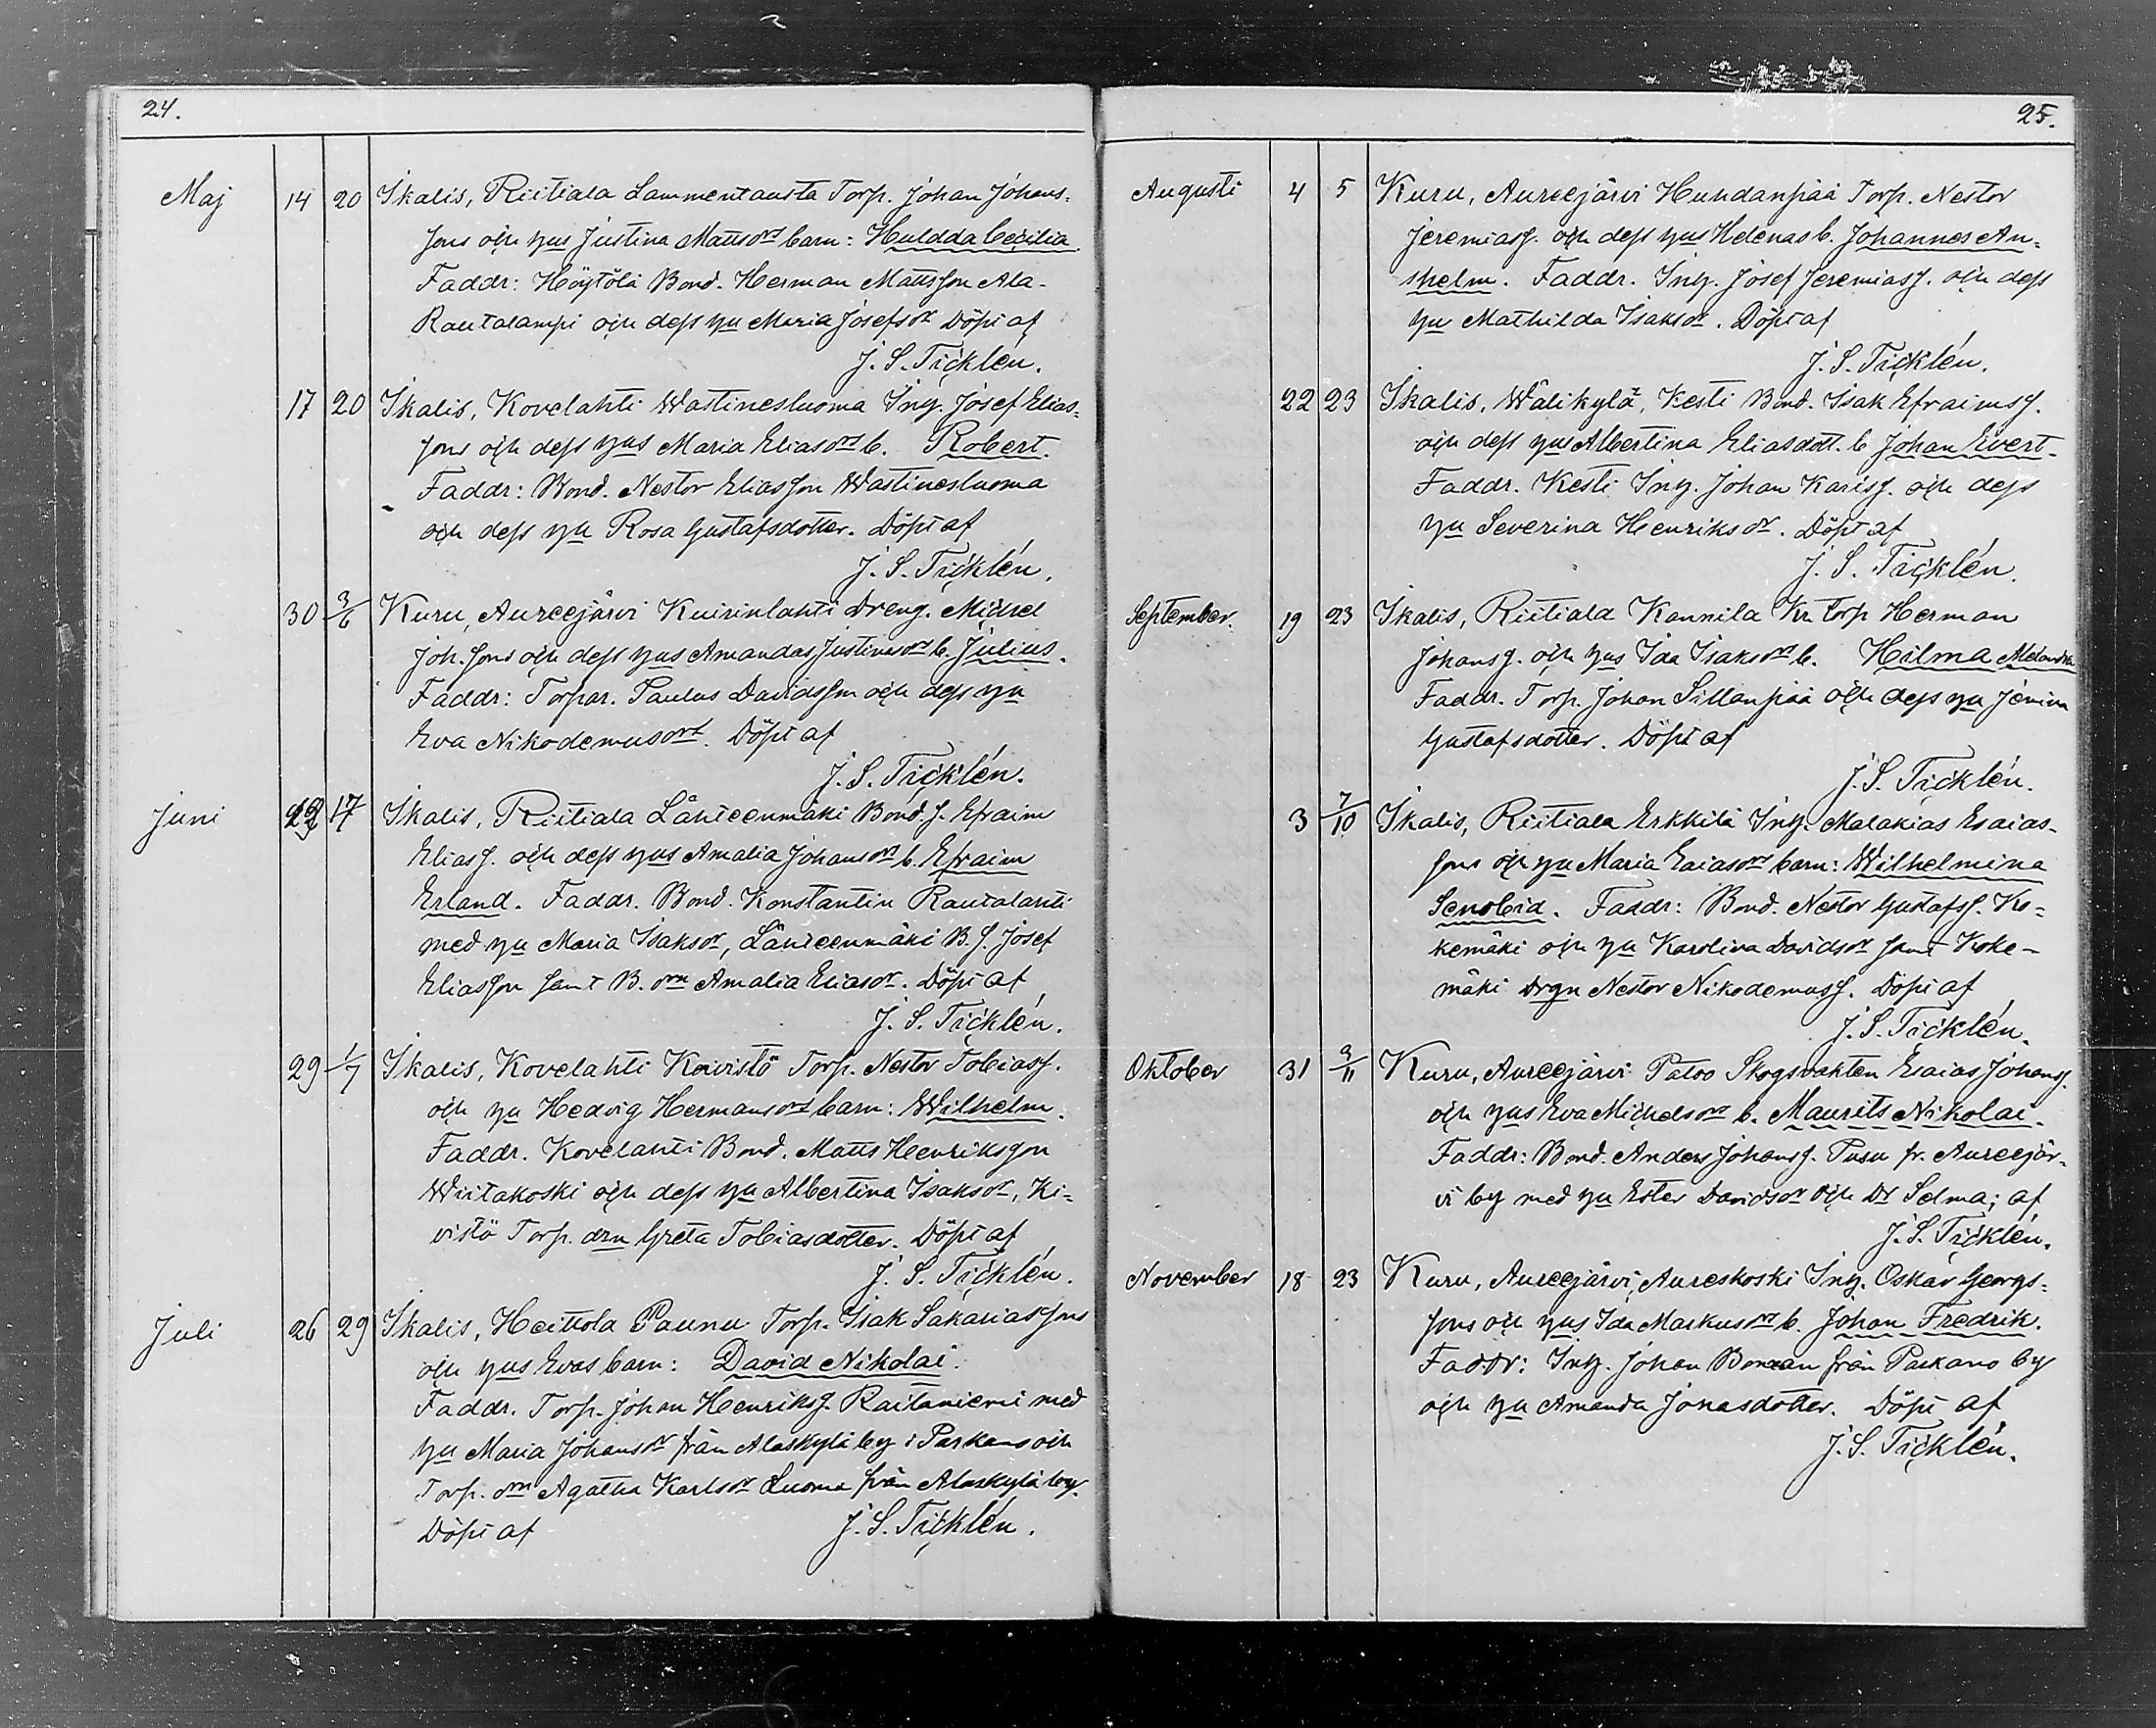 24.
Maj 14 20 Ikalis, Riitiala Lammentausta Torp. Johan Johans-
sons och hus Justina Mattsdrs barn: Huldda Cecilia
Faddr: Höytölä Bond. Herman Mattsson Ala-
Rautalampi och dess hu Maria Josefsdr Döpt af
J. S. Ticklén.
17 20 Ikalis, Kovelahti Wastinesluoma Ing. Josef Elias-
sons och dess hus Maria Eliasdrs b. Robert.
Faddr: Bond. Nestor Eliasson Wastinesluoma
och dess hu Rosa Gustafsdotter. Döpt af
J. S. Ticklén.
30 3/6 Kuru, Aureejärvi Kuirinlahti Dreng. Michel
Joh. sons och dess hus Amandas Justinusdrs b. Julius.
Faddr: Torpar. Paulus Davidsson och dess hu
Eva Nikodemusdrt. Döpt af
J. S. Ticklén.
Juni 17 Ikalis, Riitiala Länteenmäki Bond. s. Efraim
Eliass. och dess hus Amalia Johansdrs b. Efraim
Erland. Faddr. Bond. Konstantin Rautalahti
med hu Maria Isaksdr, Länteenmäki B. s. Josef
Eliasson samt B. drn Amalia Eliasdr. Döpt af
J. S. Ticklén.
29 1/7 Ikalis, Kovelahti Koivistö Torp. Nestor Tobiass.
och hu Hedvig Hermansdrs barn: Wilhelm.
Faddr. Kovelahti Bond. Matts Henriksson
Wiitakoski och dess hu Albertina Isaksdr, Ki-
vistö Torp. drn Greta Tobiasdotter. Döpt af
J. S. Ticklén.
Juli 26 29 Ikalis, Heittola Paunu Torp. Isak Sakariassons
och hus Evas barn: David Nikolai.
Faddr. Torp. Johan Henrikss. Raitaniemi med
hu Maria Johansdr från Alaskylä by i Parkano och
Torp. drn Agatha Karlsdr Luoma från Alaskylä by.
Döpt af J. S. Ticklén.
25.
Augusti 4 5 Kuru, Aureejärvi Hundanpää Torp. Nestor
Jeremiass. och dess hus Helenas b. Johannes An-
shelm. Faddr. Ing. Josef Jeremiass. och dess
hu Mathilda Isaksdr. Döpt af
J. S. Ticklén.
22 23 Ikalis, Wälikylä, Kesti Bond. Isak Efraimss.
och dess hus Albertina Eliasdott. b Johan Evert.
Faddr. Kesti Ing. Johan Kariss. och dess
hu Severina Henriksdr. Döpt af
J. S. Ticklén.
September. 19 23 Ikalis, Riitiala Kannila Kr. torp Herman
Johanss. och hus Ida Isaksdrs b. Hilma
Faddr. Torp. Johan Sillanpää och dess hu
Gustafsdotter. Döpt af
J. S. Ticklén.
3 7/10 Ikalis, Riitiala Erkkilä Ing. Malakias Esaias-
sons och hu Maria Eaiasdrs barn: Wilhelmina
Senobia. Faddr: Bond. Nestor Gustafss. Ko-
kemäki och hu Karolina Davidsdr samt Koke-
mäki drgn Nestor Nikodemuss. Döpt af
J. S. Ticklén.
Oktober 31 9/11 Kuru, Aureejärvi Patoo Skogsvakten Esaias Johanss.
och hus Eva Michelsdrs b. Maurits Nikolai.
Faddr: Bond. Anders Johanss. Pusu fr. Aureejär-
vi by med hu Ester Davidsdr och Dr Selma; af
J. S. Ticklén.
November 18 23 Kuru, Aureejärvi, Aureskoski Ing. Oskar Georgs-
sons och hus Ida Markusdrs b. Johan Fredrik.
Faddr: Ing. Johan Boman från Parkano by
och hu Amanda Jonasdotter. Döpt af
J. S. Ticklén.